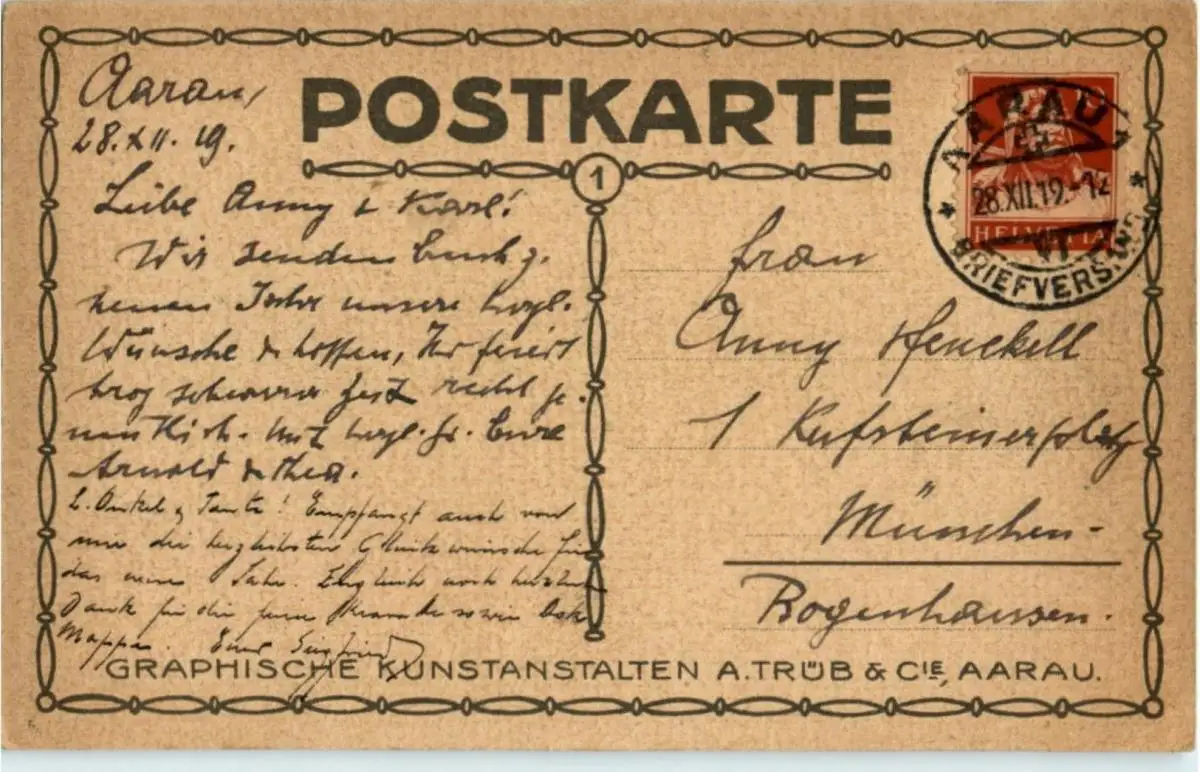 POSTKARTE
1
Aarau,
28. XII. 19.
Liebe Anny & Karl!
Wir senden Euch z.
neuen Jahre unsere hrzl.
Wünsche & hoffen, Ihr feiert
troz schwerer Zeit recht ge-
mütlich. Mit hrzl. Gr. Eure
Arnold & Thea.
L. Onkel & Tante! Empfangt auch von
mir die herzlichsten Glückwünsche für
das neue Jahr. Zugleich noch herzlichen
Dank für die feine sowie
Mappe. Euer Siegfried
AARAU 1
28.XII.19.-12
VI
* BRIEFVERSAND *
HELVETIA
Frau
Anny Henckell
1 Kufsteinerplatz
München-
Bogenhausen.
GRAPHISCHE KUNSTANSTALTEN A. TRÜB & CIE, AARAU.